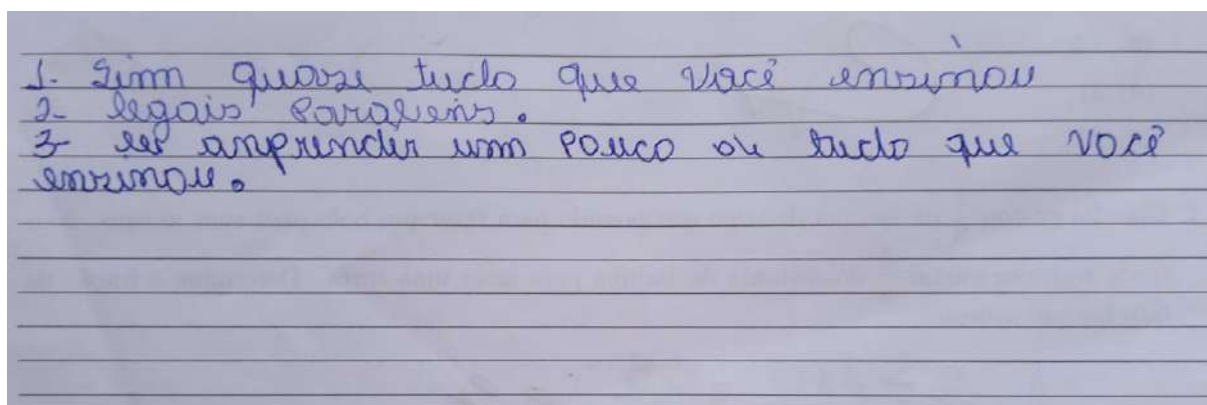 1- Sim quase tudo que você ensinou
2- legais Parabens.
3- eu anprender um Pouco ou tudo que você
ensinou.